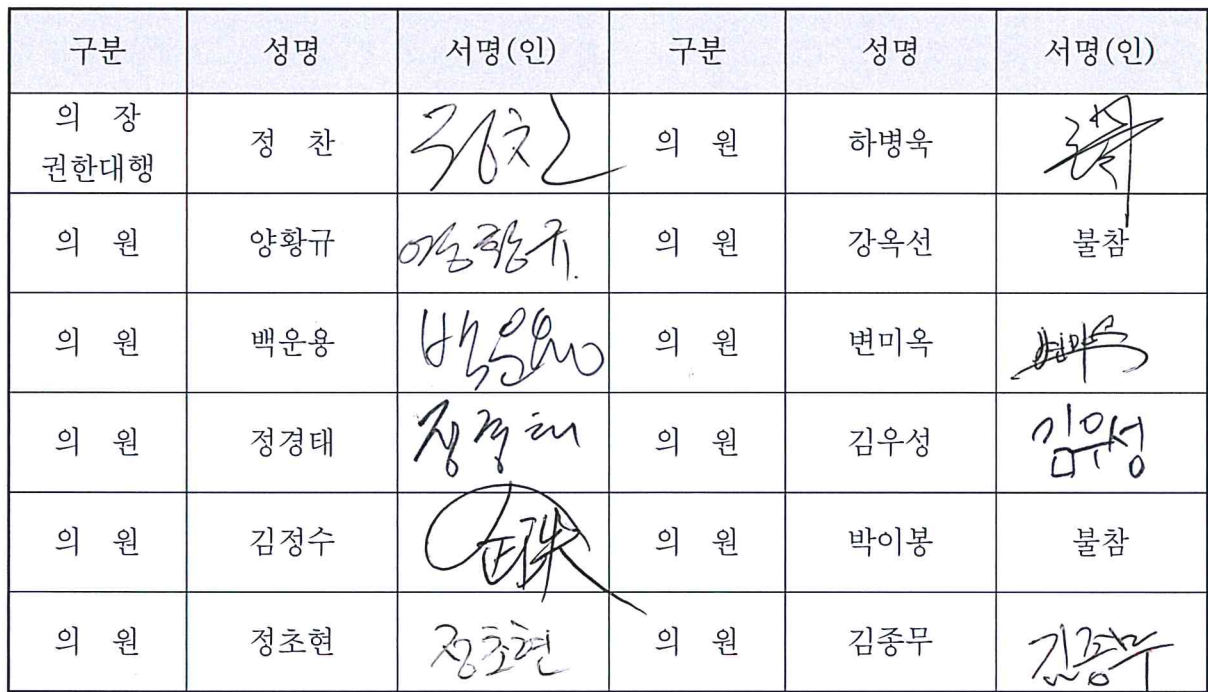 구분 성명 서명(인) 구분 성명 서명(인)
의 장
권한대행 정 찬 정찬 의 원 하병욱
의 원 양황규 양황규 의 원 강옥선 불참
의 원 백운용 백운용 의 원 변미옥 변미옥
의 원 정경태 정경태 의 원 김우성 김우성
의 원 김정수 의 원 박이봉 불참
의 원 정초현 정초현 의 원 김종무 김종무